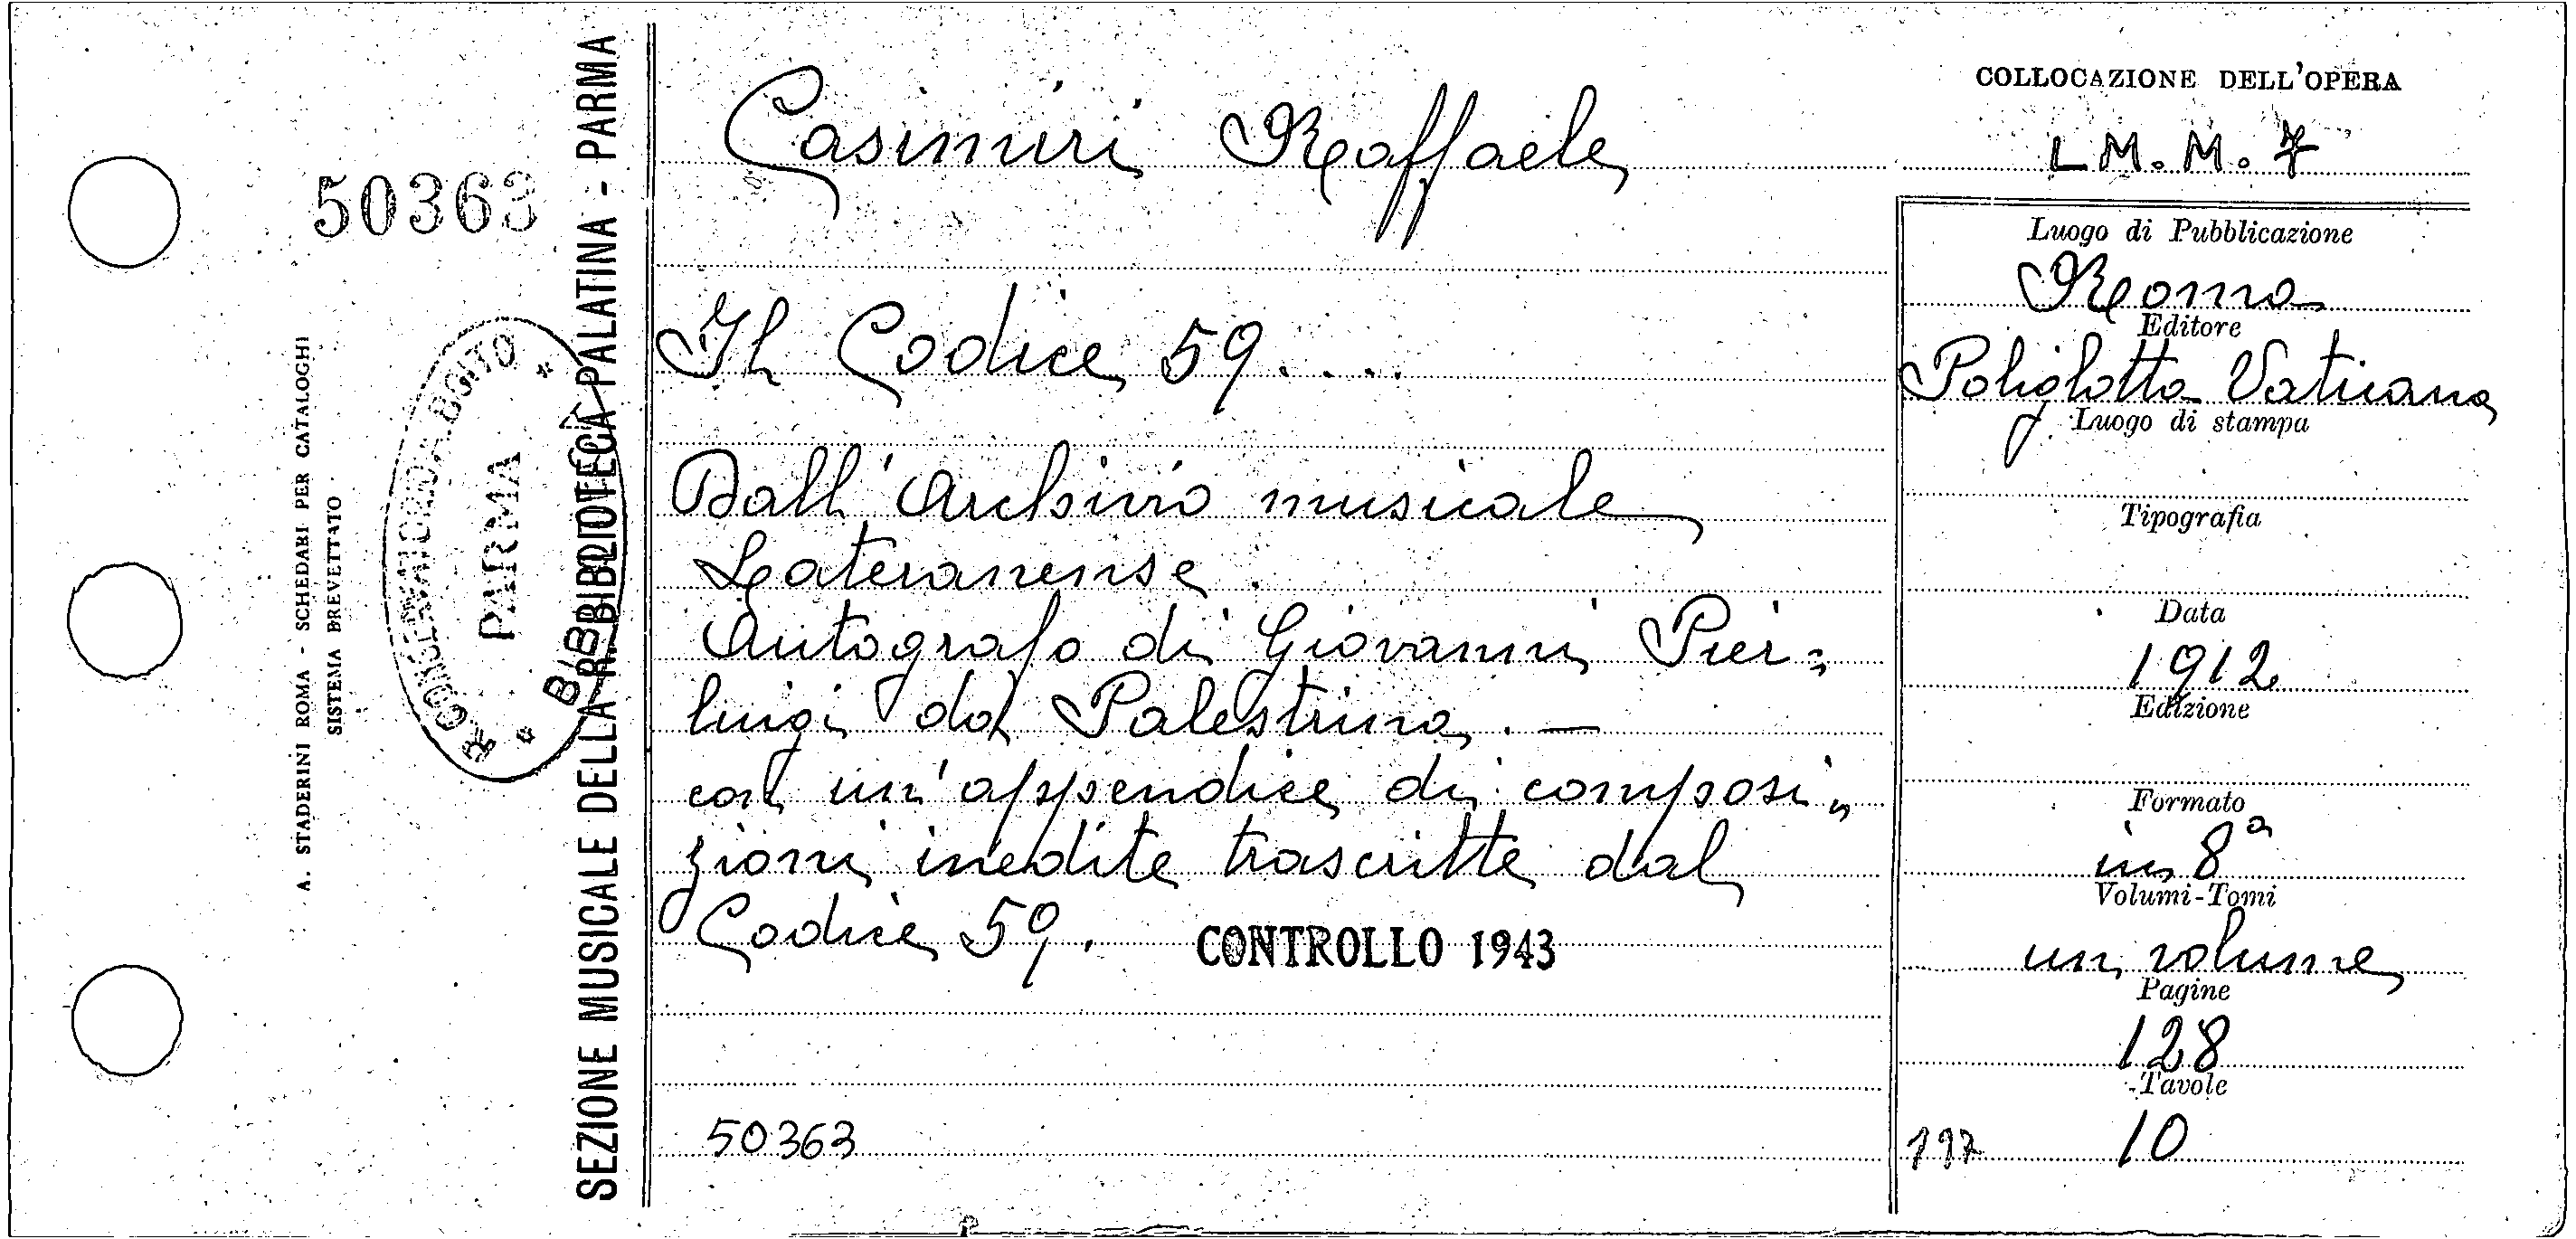 50363
A. STADERINI ROMA - SCHEDARI PER CATALOGHI
SISTEMA BREVETTATO
R. CONSERVATORIO A. BOITO
PARMA
SEZIONE MUSICALE DELLA R. BIBLIOTECA PALATINA - PARMA
Casimiri Raffaele
Il Codice 59....
Dall'Archivio musicale
Lateranense.
Autografo di Giovanni Pier=
luigi da Palestrina. —
con un'appendice di composi=
zioni inedite trascritte dal
Codice 59.
CONTROLLO 1943
50363
COLLOCAZIONE DELL'OPERA
L M. M. 7
Luogo di Pubblicazione
Roma
Editore
Poliglotta Vaticana
Luogo di stampa
Tipografia
Data
1912
Edizione
Formato
in 8°
Volumi-Tomi
un volume
Pagine
128
Tavole
197
10